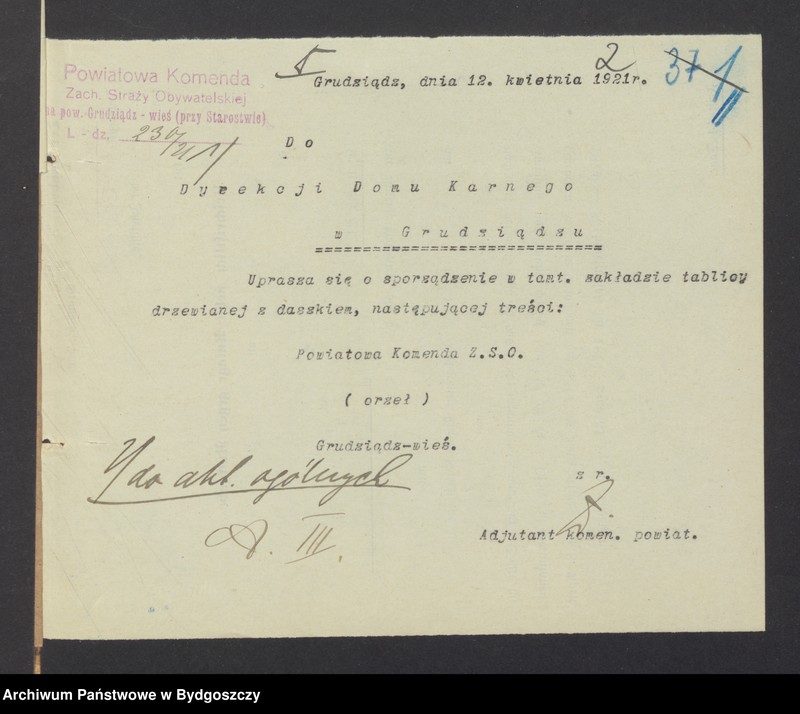 Powiatowa Komenda
Zach. Straży Obywatelskiej
na pow. Grudziądz - wieś (przy Starostwie)
L - dz. 230/21
Grudziądz, dnia 12. kwietnia 1921r.
2
37
1
Do
Dyrekcji Domu Karnego
w Grudziądzu
==============================
Uprasza się o sporządzenie w tamt. zakładzie tablicy
drzewianej z daszkiem, następującej treści:
Powiatowa Komenda Z.S.O.
( orzeł )
Grudziądz-wieś.
z r.
Adjutant komen. powiat.
do akt. ogólnych
A. III.
Archiwum Państwowe w Bydgoszczy